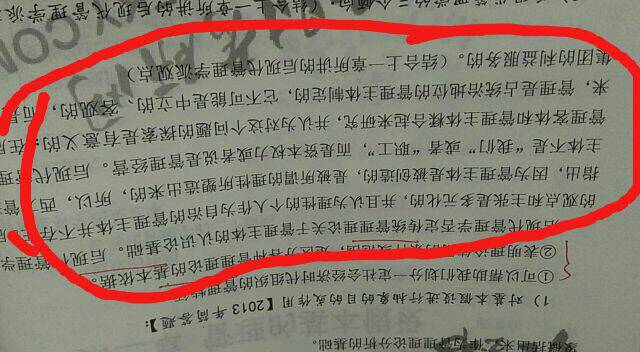 出来。作为管理理论分析的基础。
1）对基本假设进行抽象的目的或作用【2013年简答题】：
①可以帮助我们划分一定社会经济时代组织的管理特征
②表明理论 是区分各种管理理论的基本依据。
后现代管理学否定传统管理理论关于管理主体的认识论基础。后现代管理学
的观点和主张是多元化的，并且认为理性的个人作为自治的管理主体并不存在
指出，因为管理主体是被创造的，是被所谓的理性所塑造出来的，所以，西方管
主体不是“我们”或者“职工”，而是资本权力或者说是管理经营。后现代管理
管理客体和管理主体糅合起来研究，并认为对这个问题的探索是有意义的；在后
来，管理是占统治地位的管理主体制定的，它不可能是中立的、客观的，而是
集团的利益服务的。（结合上一章所讲的后现代管理学派观点）
（结合上一章所讲的后现代管理学派